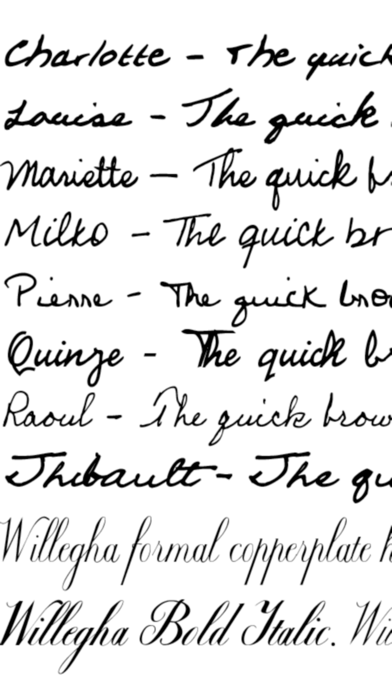 Charlotte - The quick
Louise - The quick
Mariette — The quick b
Milko - The quick br
Pierre - The quick bro
Quinze - The quick b
Raoul - The quick brow
Thibault - The qu
Willegha formal copperplate h
Willegha Bold Italic. Wi